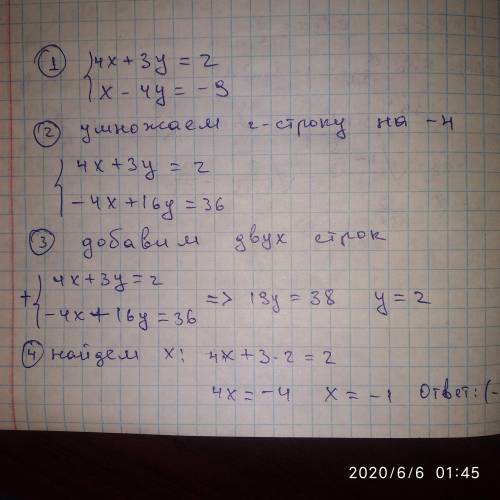 ① 4x+3y=2
x-4y=-9
② умножаем 2-строку на -4
4x+3y=2
-4x+16y=36
③ добавим двух строк
+ 4x+3y=2
-4x+16y=36 => 19y=38 y=2
④ найдем x: 4x+3·2=2
4x=-4 x=-1 Ответ: (-
2020/6/6 01:45